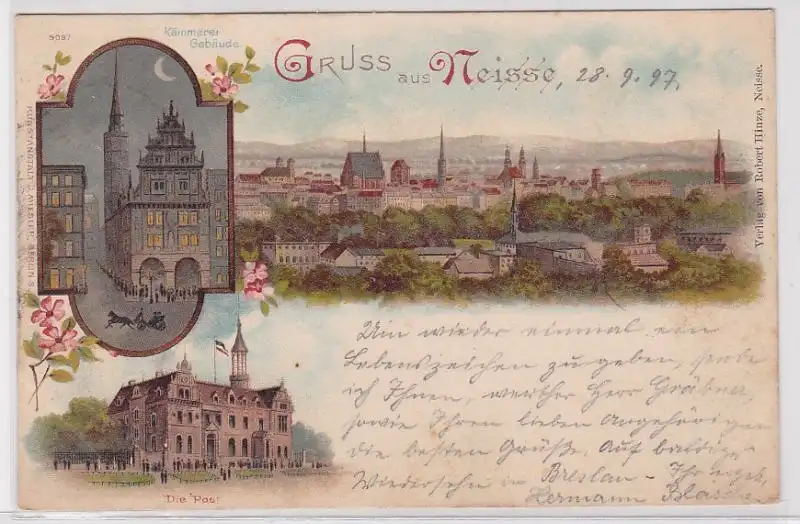 5097
Kämmerei
Gebäude.
GRUSS aus Neisse, 28.9.97.
KUNSTANSTALT J. MIESLER, BERLIN S.
Verlag von Robert Hinze, Neisse.
Um wieder einmal ein
Lebenszeichen zu geben, sende
ich Ihnen, werther Herr Gräbner,
sowie Ihren lieben Angehörigen
die besten Grüße. Auf baldiges
Wiedersehn in Breslau - Ihr ergeb.
Hermann
Die Post